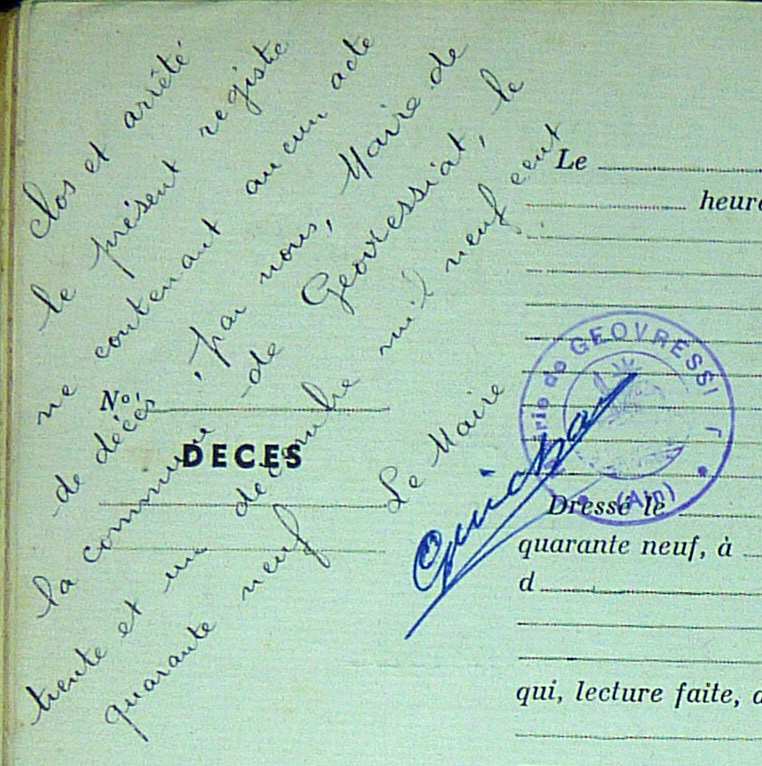 clos et arrêté
le présent registre
ne contenant aucun acte
de décés, par nous, Maire de
la commune de Geovressiat, le
trente et un decembre mil neuf cent
quarante neuf
Le Maire
N°
DECES
Le
heure
Mairie de GEOVRESSIAT
(Ain)
Dressé le
quarante neuf, à
d
qui, lecture faite,